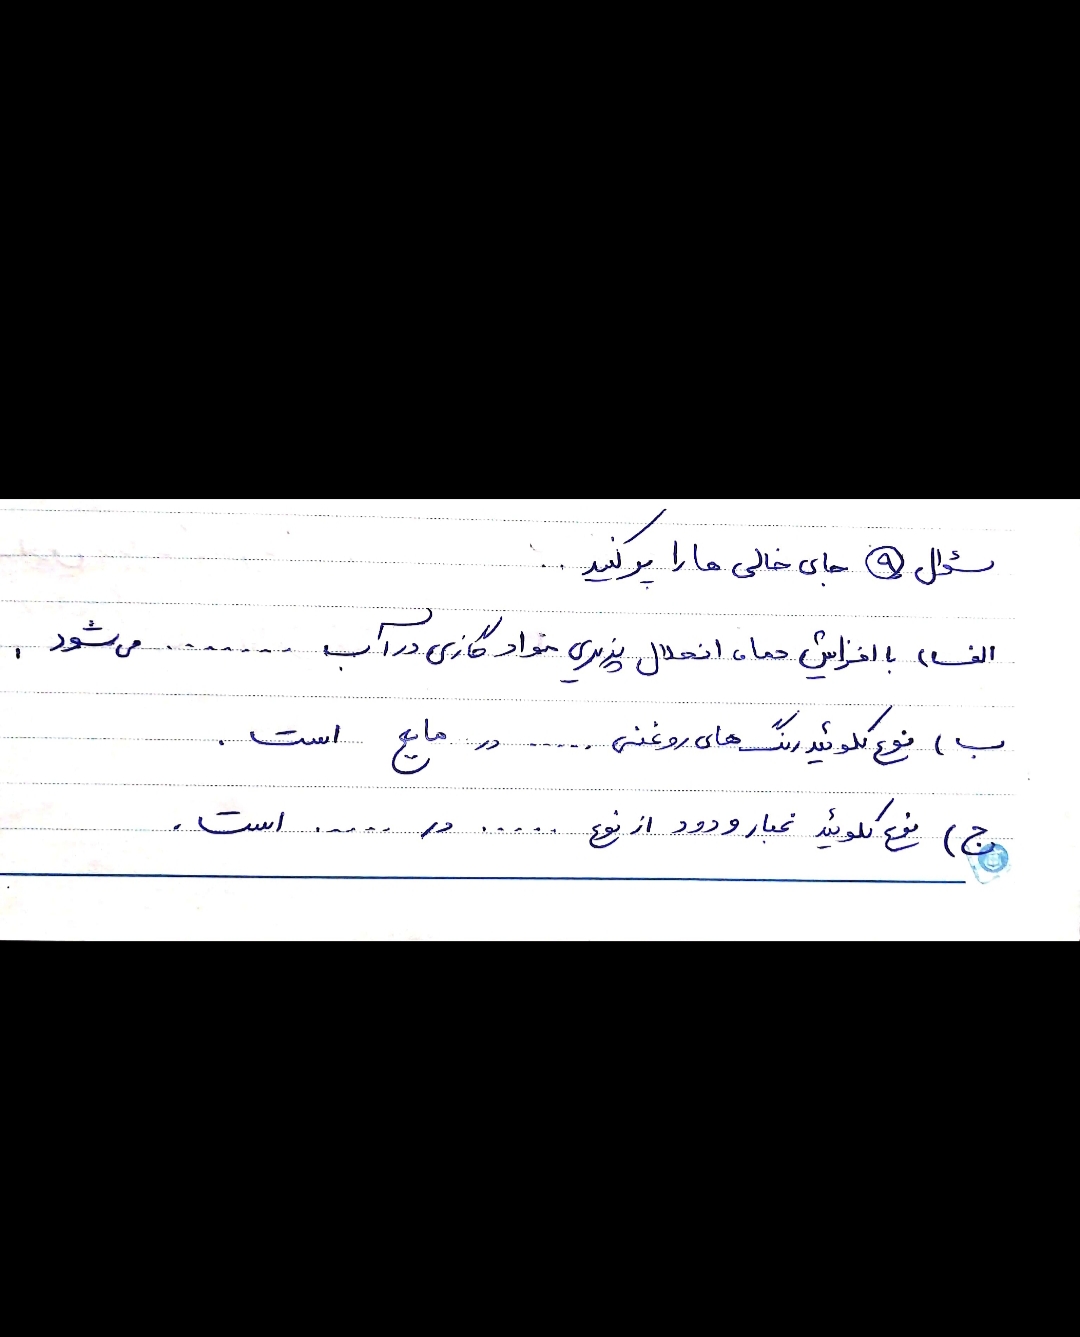 سئوال ۹ جای خالی ها را پر کنید ..
الف) با افزایش دمای انحلال پذیری مواد گازی در آب ........ می شود .
ب) نوع کلوئید رنگ های روغنی ..... در مایع است .
ج) نوع کلوئید غبار و دود از نوع ..... در ..... است .